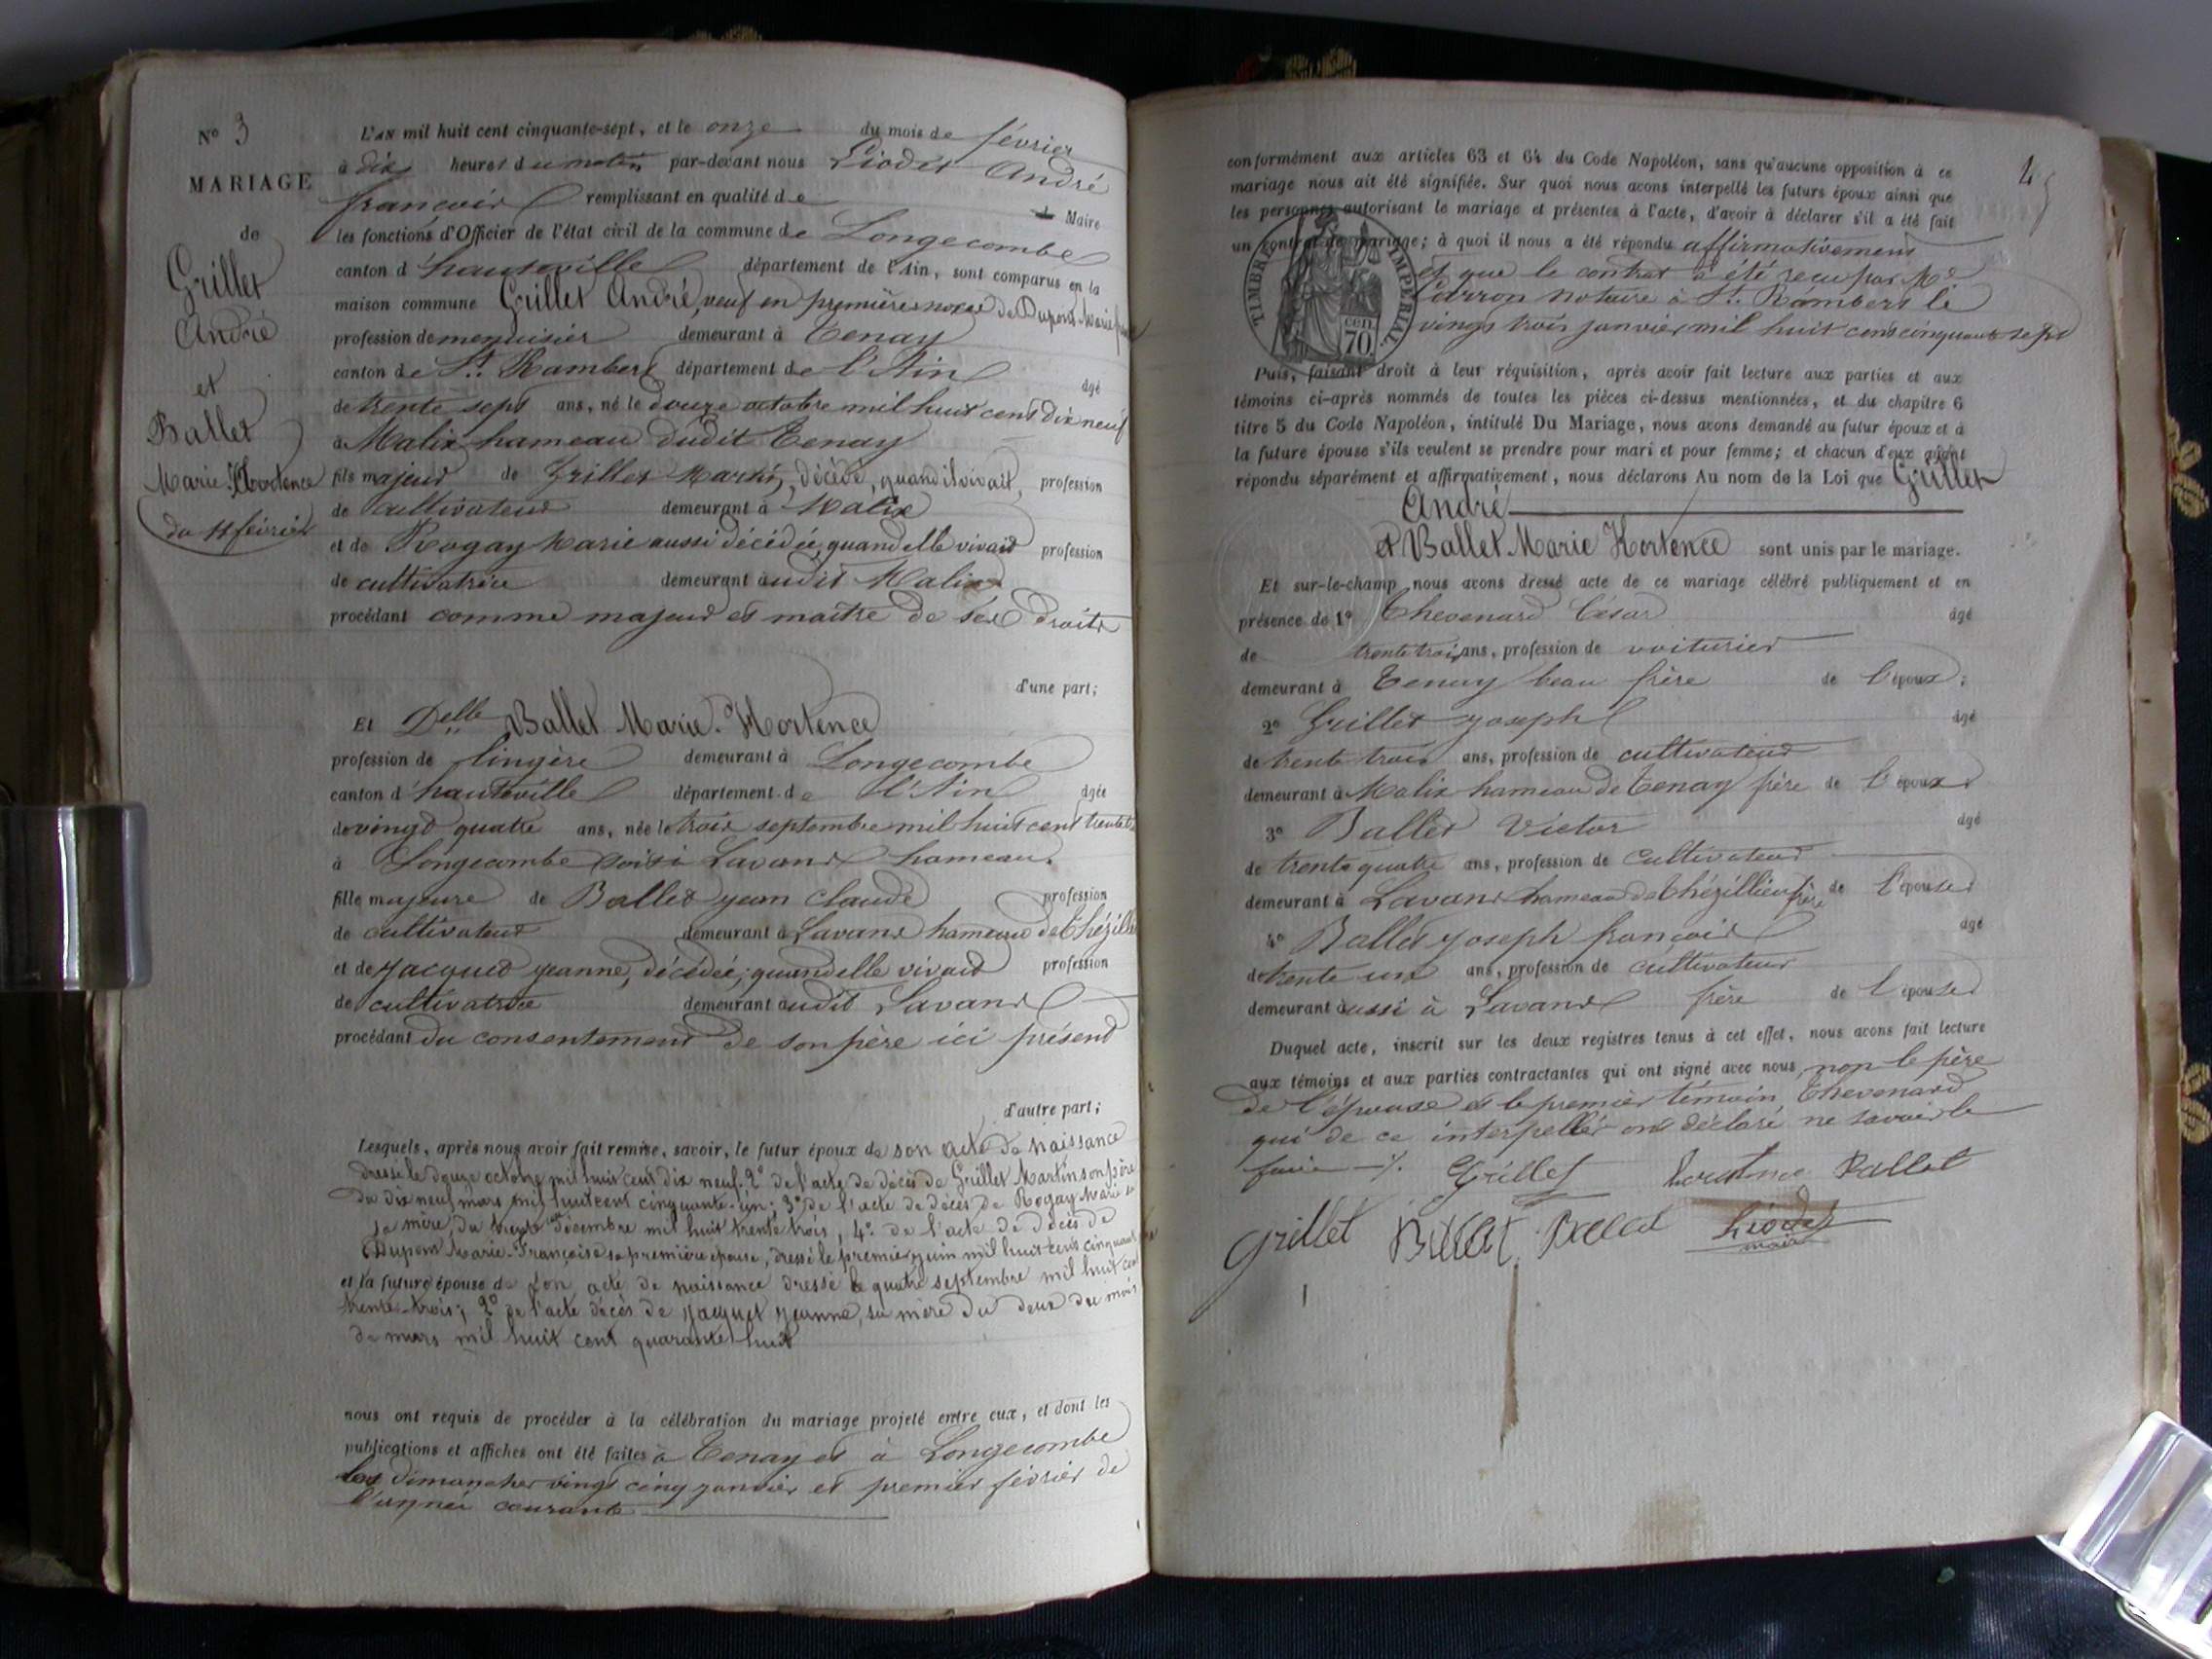 N° 3
MARIAGE
de
Grillet
André
et
Ballet
Marie-Hortence
du 11 février
L'AN mil huit cent cinquante-sept, et le onze du mois de février
à dix heures du matin par-devant nous Liodet André
françois remplissant en qualité de Maire
les fonctions d'Officier de l'état civil de la commune de Longecombe
canton d'hauteville département de l'Ain, sont comparus en la
maison commune Grillet André, veuf en premières noces de Dupont Marie
profession de menuisier demeurant à Tenay
canton de St. Rambert département de l'Ain âgé
de trente sept ans, né le douze octobre mil huit cent dix neuf
à Malix hameau dudit Tenay
fils majeur de Grillet Martin, décédé, quand il vivait, profession
de cultivateur demeurant à Malix
et de Rogay Marie aussi décédée, quand elle vivait profession
de cultivatrice demeurant audit Malix
procédant comme majeur et maître de ses droits
d'une part;
Et Delle Ballet Marie-Hortence
profession de lingère demeurant à Longecombe
canton d'hauteville département de l'Ain âgée
de vingt quatre ans, née le trois septembre mil huit cent trente
à Longecombe Lavant hameau
fille majeure de Ballet jean Claude profession
de cultivateur demeurant à Lavant hameau de Thézilli
et de Jacquet jeanne, décédée, quand elle vivait profession
de cultivatrice demeurant audit Lavant
procédant du consentement de son père ici présent
d'autre part;
Lesquels, après nous avoir fait remise, savoir, le futur époux de son acte de naissance
dressé le douze octobre mil huit cent dix neuf. 2° de l'acte de décès de Grillet Martin son père
du dix neuf mars mil huit cent cinquante-un; 3° de l'acte de décès de Rogay Marie
sa mère, du décembre mil huit trente trois, 4° de l'acte de décès de
Dupont Marie-Françoise sa première épouse, dressé le premier juin mil huit cent cinquante
et la future épouse de son acte de naissance dressé le quatre septembre mil huit cent
trente-trois; 2° de l'acte décès de Jacquet Jeanne, sa mère du deux du mois
de mars mil huit cent quarante huit
nous ont requis de procéder à la célébration du mariage projeté entre eux, et dont les
publications et affiches ont été faites à Tenay et à Longecombe
les dimanches vingt cinq janvier et premier février de
l'année courante
conformément aux articles 63 et 64 du Code Napoléon, sans qu'aucune opposition à ce
mariage nous ait été signifiée. Sur quoi nous avons interpellé les futurs époux ainsi que
les personnes autorisant le mariage et présentes à l'acte, d'avoir à déclarer s'il a été fait
un contrat de mariage; à quoi il nous a été répondu affirmativement
et que le contrat a été reçu par Me
notaire à St. Rambert le
vingt trois janvier mil huit cent cinquante sept
TIMBRE IMPÉRIAL
70 cen.
Puis, faisant droit à leur réquisition, après avoir fait lecture aux parties et aux
témoins ci-après nommés de toutes les pièces ci-dessus mentionnées, et du chapitre 6
titre 5 du Code Napoléon, intitulé Du Mariage, nous avons demandé au futur époux et à
la future épouse s'ils veulent se prendre pour mari et pour femme; et chacun d'eux ayant
répondu séparément et affirmativement, nous déclarons Au nom de la Loi que Grillet
André
et Ballet Marie Hortence sont unis par le mariage.
Et sur-le-champ nous avons dressé acte de ce mariage célébré publiquement et en
présence de 1° Thevenard César âgé
de trente trois ans, profession de voiturier
demeurant à Tenay beau frère de l'époux;
2° Grillet joseph âgé
de trente trois ans, profession de cultivateur
demeurant à Malix hameau de Tenay frère de l'époux
3° Ballet Victor âgé
de trente quatre ans, profession de cultivateur
demeurant à Lavant hameau de Thézillieu frère de l'épouse
4° Ballet joseph françois âgé
de trente un ans, profession de cultivateur
demeurant aussi à Lavant frère de l'épouse
Duquel acte, inscrit sur les deux registres tenus à cet effet, nous avons fait lecture
aux témoins et aux parties contractantes qui ont signé avec nous, non le père
de l'épouse et le premier témoin Thevenard
qui de ce interpellés ont déclaré ne savoir le
faire ./.
Grillet Ballet
grillet Ballet Ballet Liodet
maire